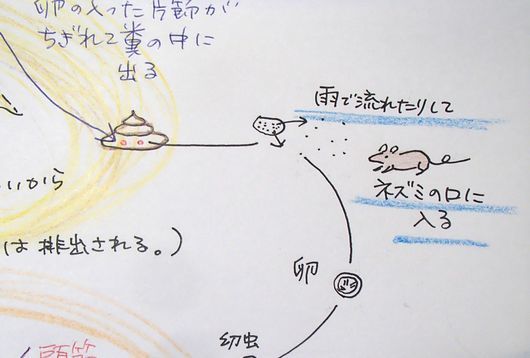 卵の入った片節が
ちぎれて糞の中に
出る
雨で流れたりして
ネズミの口に
入る
いから
は排出される。)
卵
幼虫
頭節